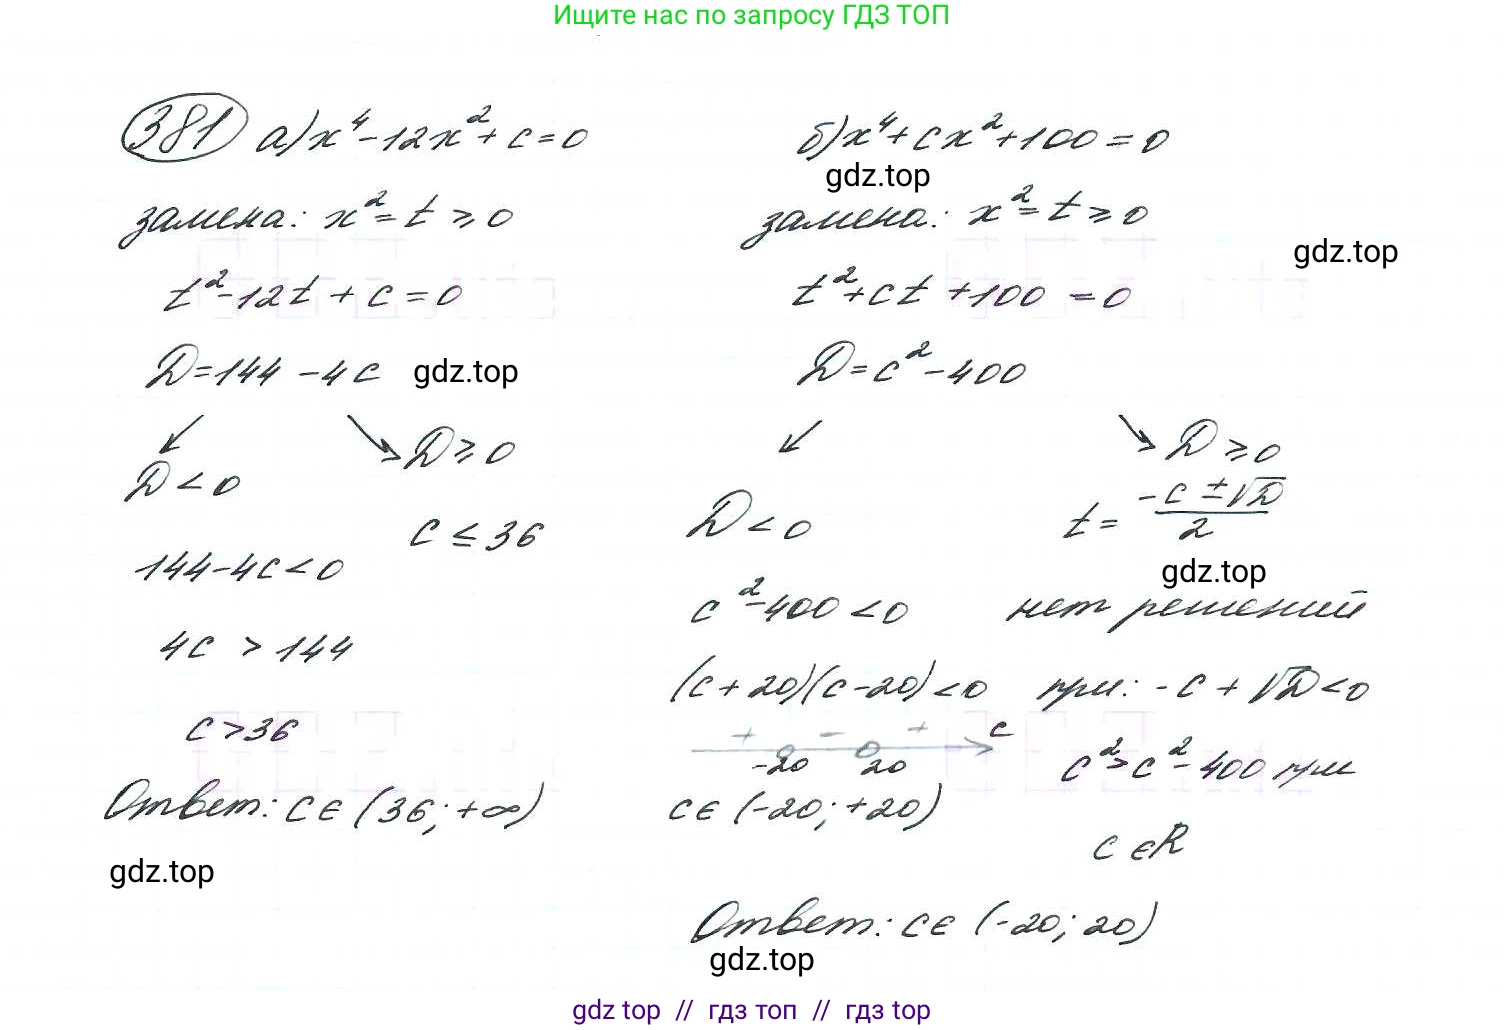 Ищите нас по запросу ГДЗ ТОП
381 а) x⁴-12x²+c=0
замена: x²=t ≥ 0
t²-12t+c=0
D=144-4c gdz.top
D<0
D≥0
c ≤ 36
144-4c<0
4c > 144
c>36
Ответ: c∈(36;+∞)
gdz.top
б) x⁴+cx²+100=0
gdz.top
замена: x²=t≥0
gdz.top
t²+ct+100=0
D=c²-400
D<0
c²-400<0
(c+20)(c-20)<0
+ - + c
-20 20
c∈(-20;+20)
D≥0
t= (-c±√D)/2
gdz.top
нет решений
при: -c+√D<0
c²>c²-400 при
c∈R
Ответ: c∈(-20;20)
gdz.top
gdz top // гдз топ // гдз top